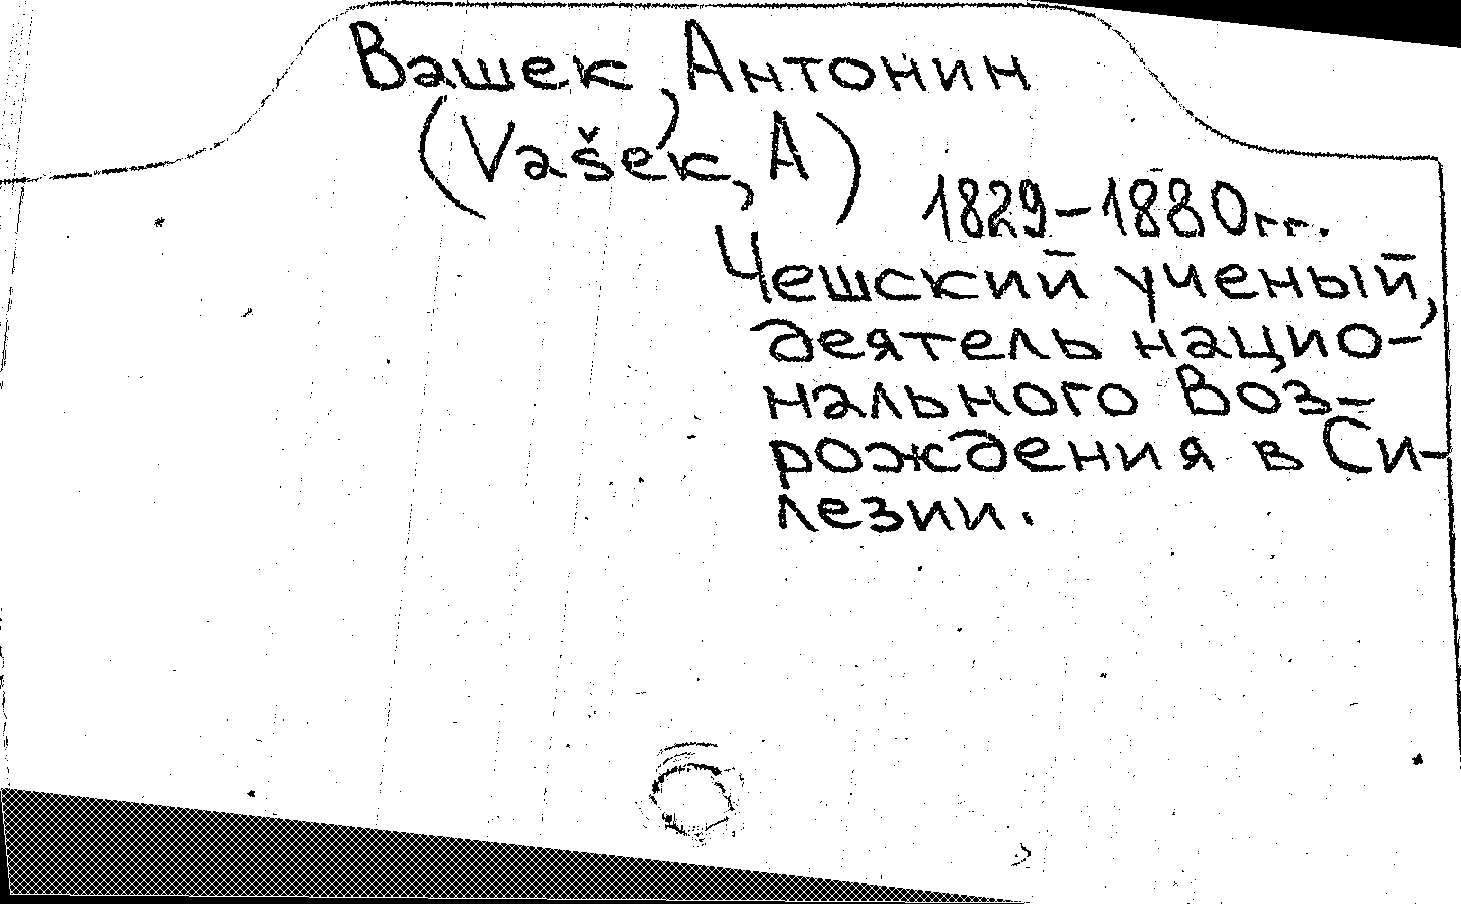 Вашек, Антонин
(Vašek, A)
1829-1880гг.
Чешский ученый,
деятель нацио-
нального Воз-
рождения в Си-
лезии.